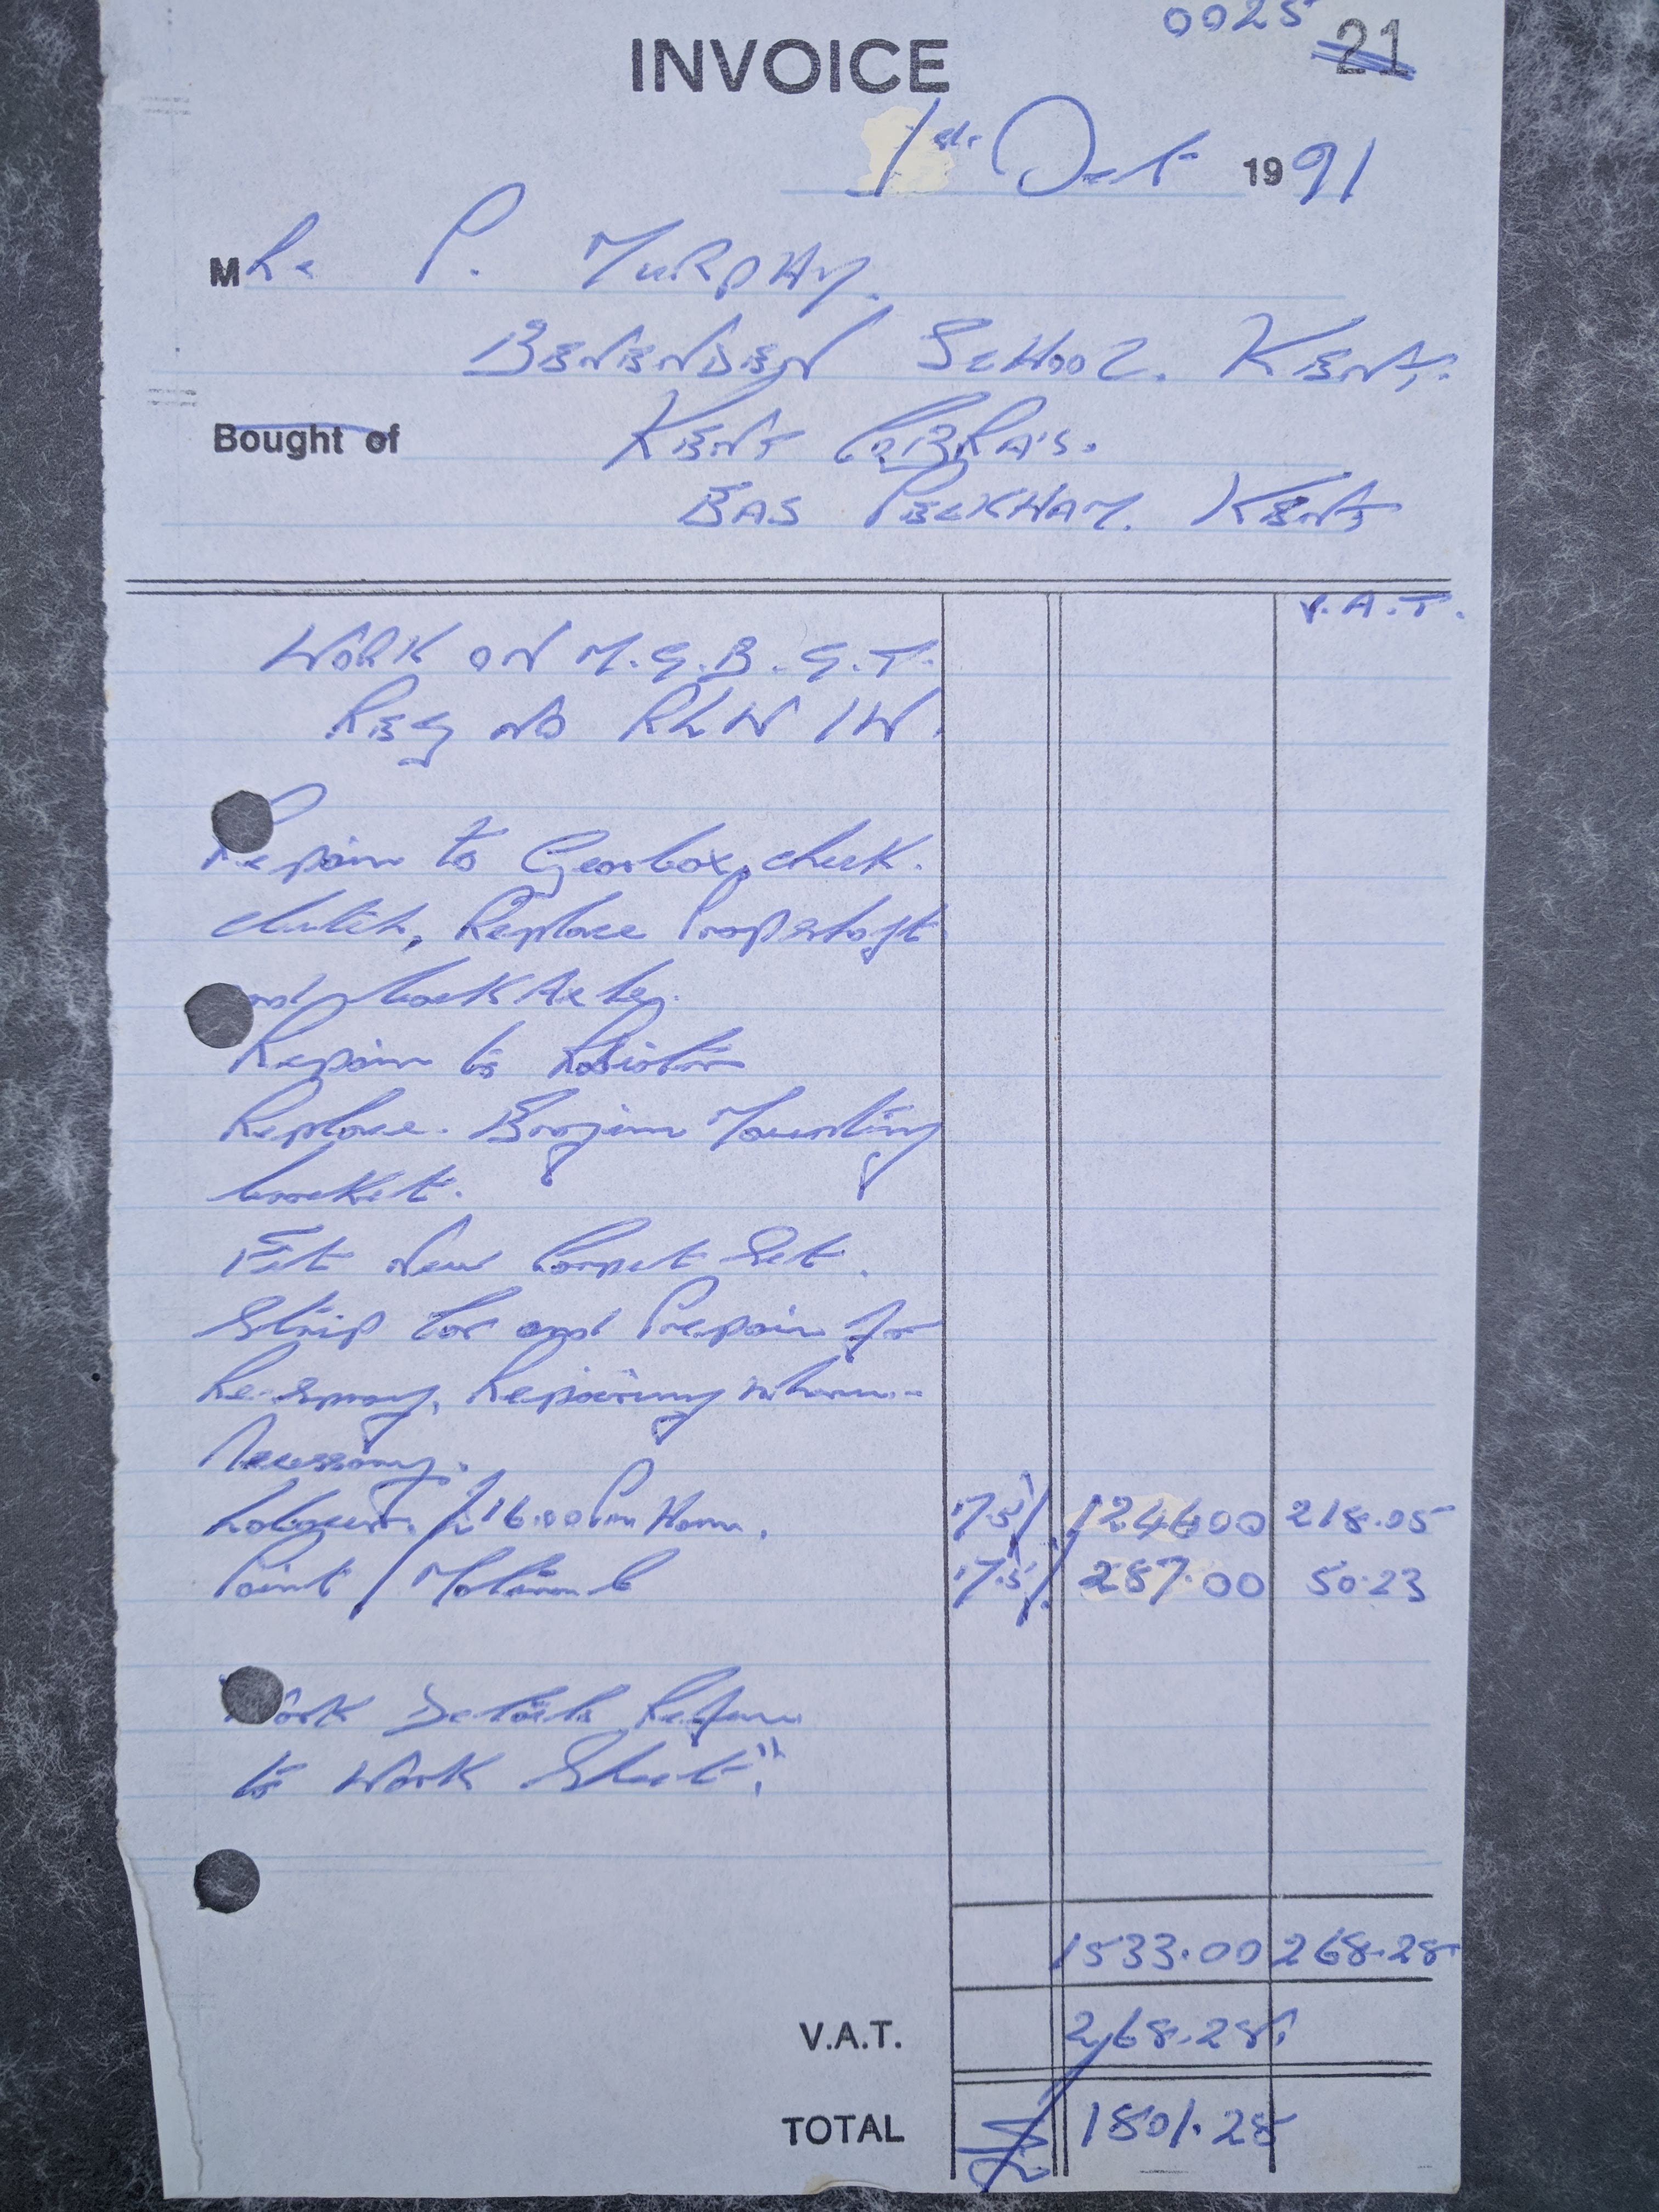 0025 21
INVOICE
1st Oct 1991
MR. P. MURPHY.
BENENDEN SCHOOL. KENT.
Bought of KENT COBRA'S.
EAS PECKHAM. KENT
V.A.T.
WORK ON M.G.B. G.T.
REG NO RLW 1W.
Repair to Gearbox, check.
clutch, Replace Propshaft
and back Axle.
Repair to Radiator
Replace. Engine Mounting
bracket.
Fit New Carpet Set.
Strip Car and Prepair for
Re-Spray, Repairing where
Necessary.
Labour. / £16.00 Per Hour. 17.5% 1246.00 218.05
Paint / Materials 17.5% 287.00 50.23
"Work Details Refer
to Work Sheet".
1533.00 268.28
V.A.T. 268.28
TOTAL £ 1801.28